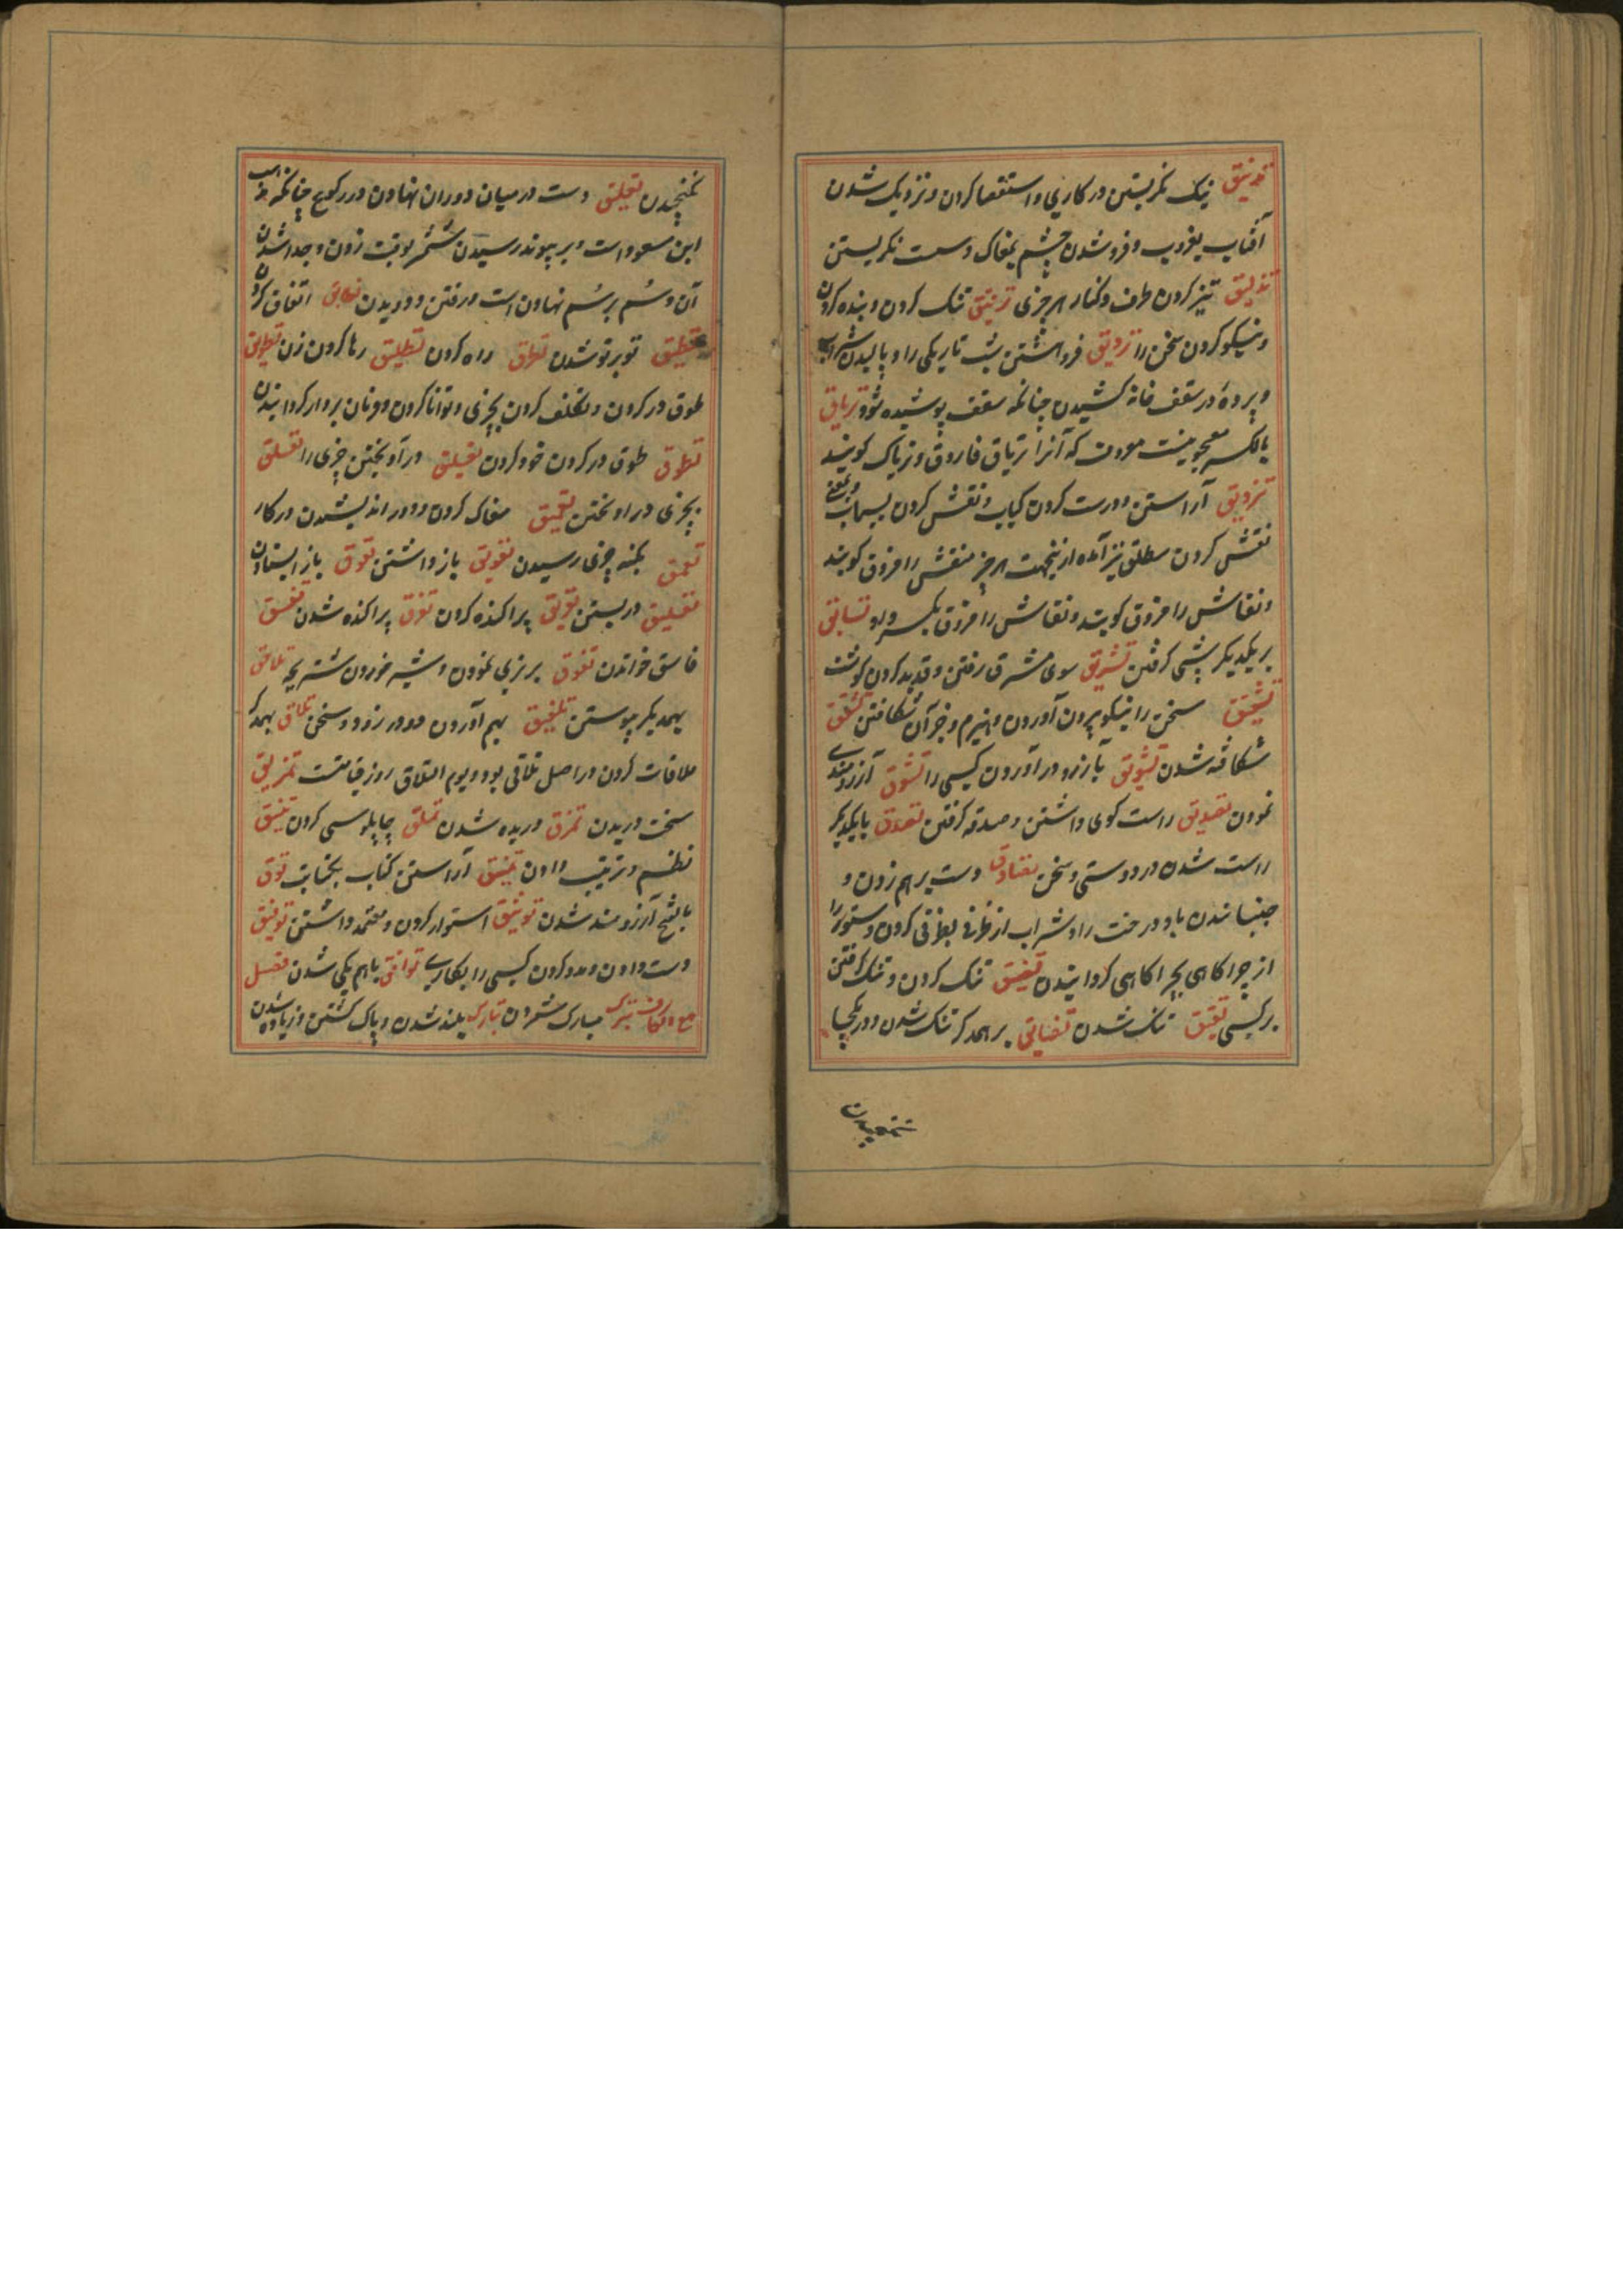 تدنیق نیک نکریستن در کاری و استقصا کردن و نزدیک شدن
آفتاب بغروب و فرو شدن چشم بمغاک و سست نکریستن
تذلیق تیز کردن طرف و کنار هر چیزی ترنیق تنک کردن و بنده کردن
و نیکو کردن سخن را ترویق فرو هشتن شب تاریکی را و پالیدن شراب
و پرده در سقف خانه کشیدن چنانکه سقف پوشیده شود تریاق
بالکسر معجونیست معروف که آنرا تریاق فاروق و تریاک کویند
تزویق آراستن و درست کردن کتاب و نقش کردن بسیماب و بمعنی
نقش کردن مطلق نیز آمده ازینجهت هر چیز منقش را مزوق کویند
و نقاش را مزوق کویند و نقاش را مزوق بکسر واو تسابق
بر یکدیکر پیشی کرفتن تشریق سوی مشرق رفتن و قدید کردن کوشت
تشقیق سخن را نیکو بیرون آوردن و هیزم و جز آن شکافتن تشقق
شکافته شدن تشویق بآرزو در آوردن کسی را تشوق آرزومندی
نمودن تصدیق راست کوی داشتن و صدقه کرفتن تصدق بایکدیکر
راست شدن در دوستی و سخن تصادق دست بر هم زدن و
جنبانیدن باد درخت را و شراب از ظرفی بظرفی کردن و ستور را
از چراکاهی بچراکاهی کردانیدن تضییق تنک کردن و تنک کرفتن
بر کسی تضیق تنک شدن تضایق بر همدکر تنک شدن و در یکجا
نکنجیدن
نکنجیدن تطبیق دست در میان دو ران نهادن در رکوع چنانکه مذهب
ابن مسعود است و بر پیوند رسیدن شمشیر بوقت زدن و جدا شدن
آن و سُم بر سُم نهادن اسب در رفتن و دویدن تطابق اتفاق کردن
تطبق تو بر تو شدن تطرق راه کردن تطلیق رها کردن زن تطویق
طوق در کردن و تکلف کردن بچیزی و توانا کردن و فرمان بردار کردانیدن
تطوق طوق در کردن خود کردن تعلیق در آویختن چیزی را تعلق
بچیزی در اویختن تعمیق مغاک کردن و دور اندیشیدن در کار
تعمق بکنه چیزی رسیدن تعویق باز داشتن تعوق باز ایستادن
تغلیق در بستن تفریق پراکنده کردن تفرق پراکنده شدن تفسیق
فاسق خواندن تفوق برتری نمودن و شیر خوردن شتر بچه تلاحق
بهمدیکر پیوستن تلفیق بهم آوردن دو درز و دو سخن تلاق بهمدکر
ملاقات کردن در اصل تلاقی بود و یوم التلاق روز قیامت تمزیق
سخت دریدن تمزق دریده شدن تملق چاپلوسی کردن تنسیق
نظم و ترتیب دادن تنمیق آراستن کتاب بکتابت توق
بالفتح آرزومند شدن توثیق استوار کردن و معتمد داشتن توفیق
دست دادن و مدد کردن کسی را بکاری توافق باهم یکی شدن فصل
مع الکاف تبرک مبارک شمردن تبارک بلند شدن و پاک کشتن و زیاده شدن